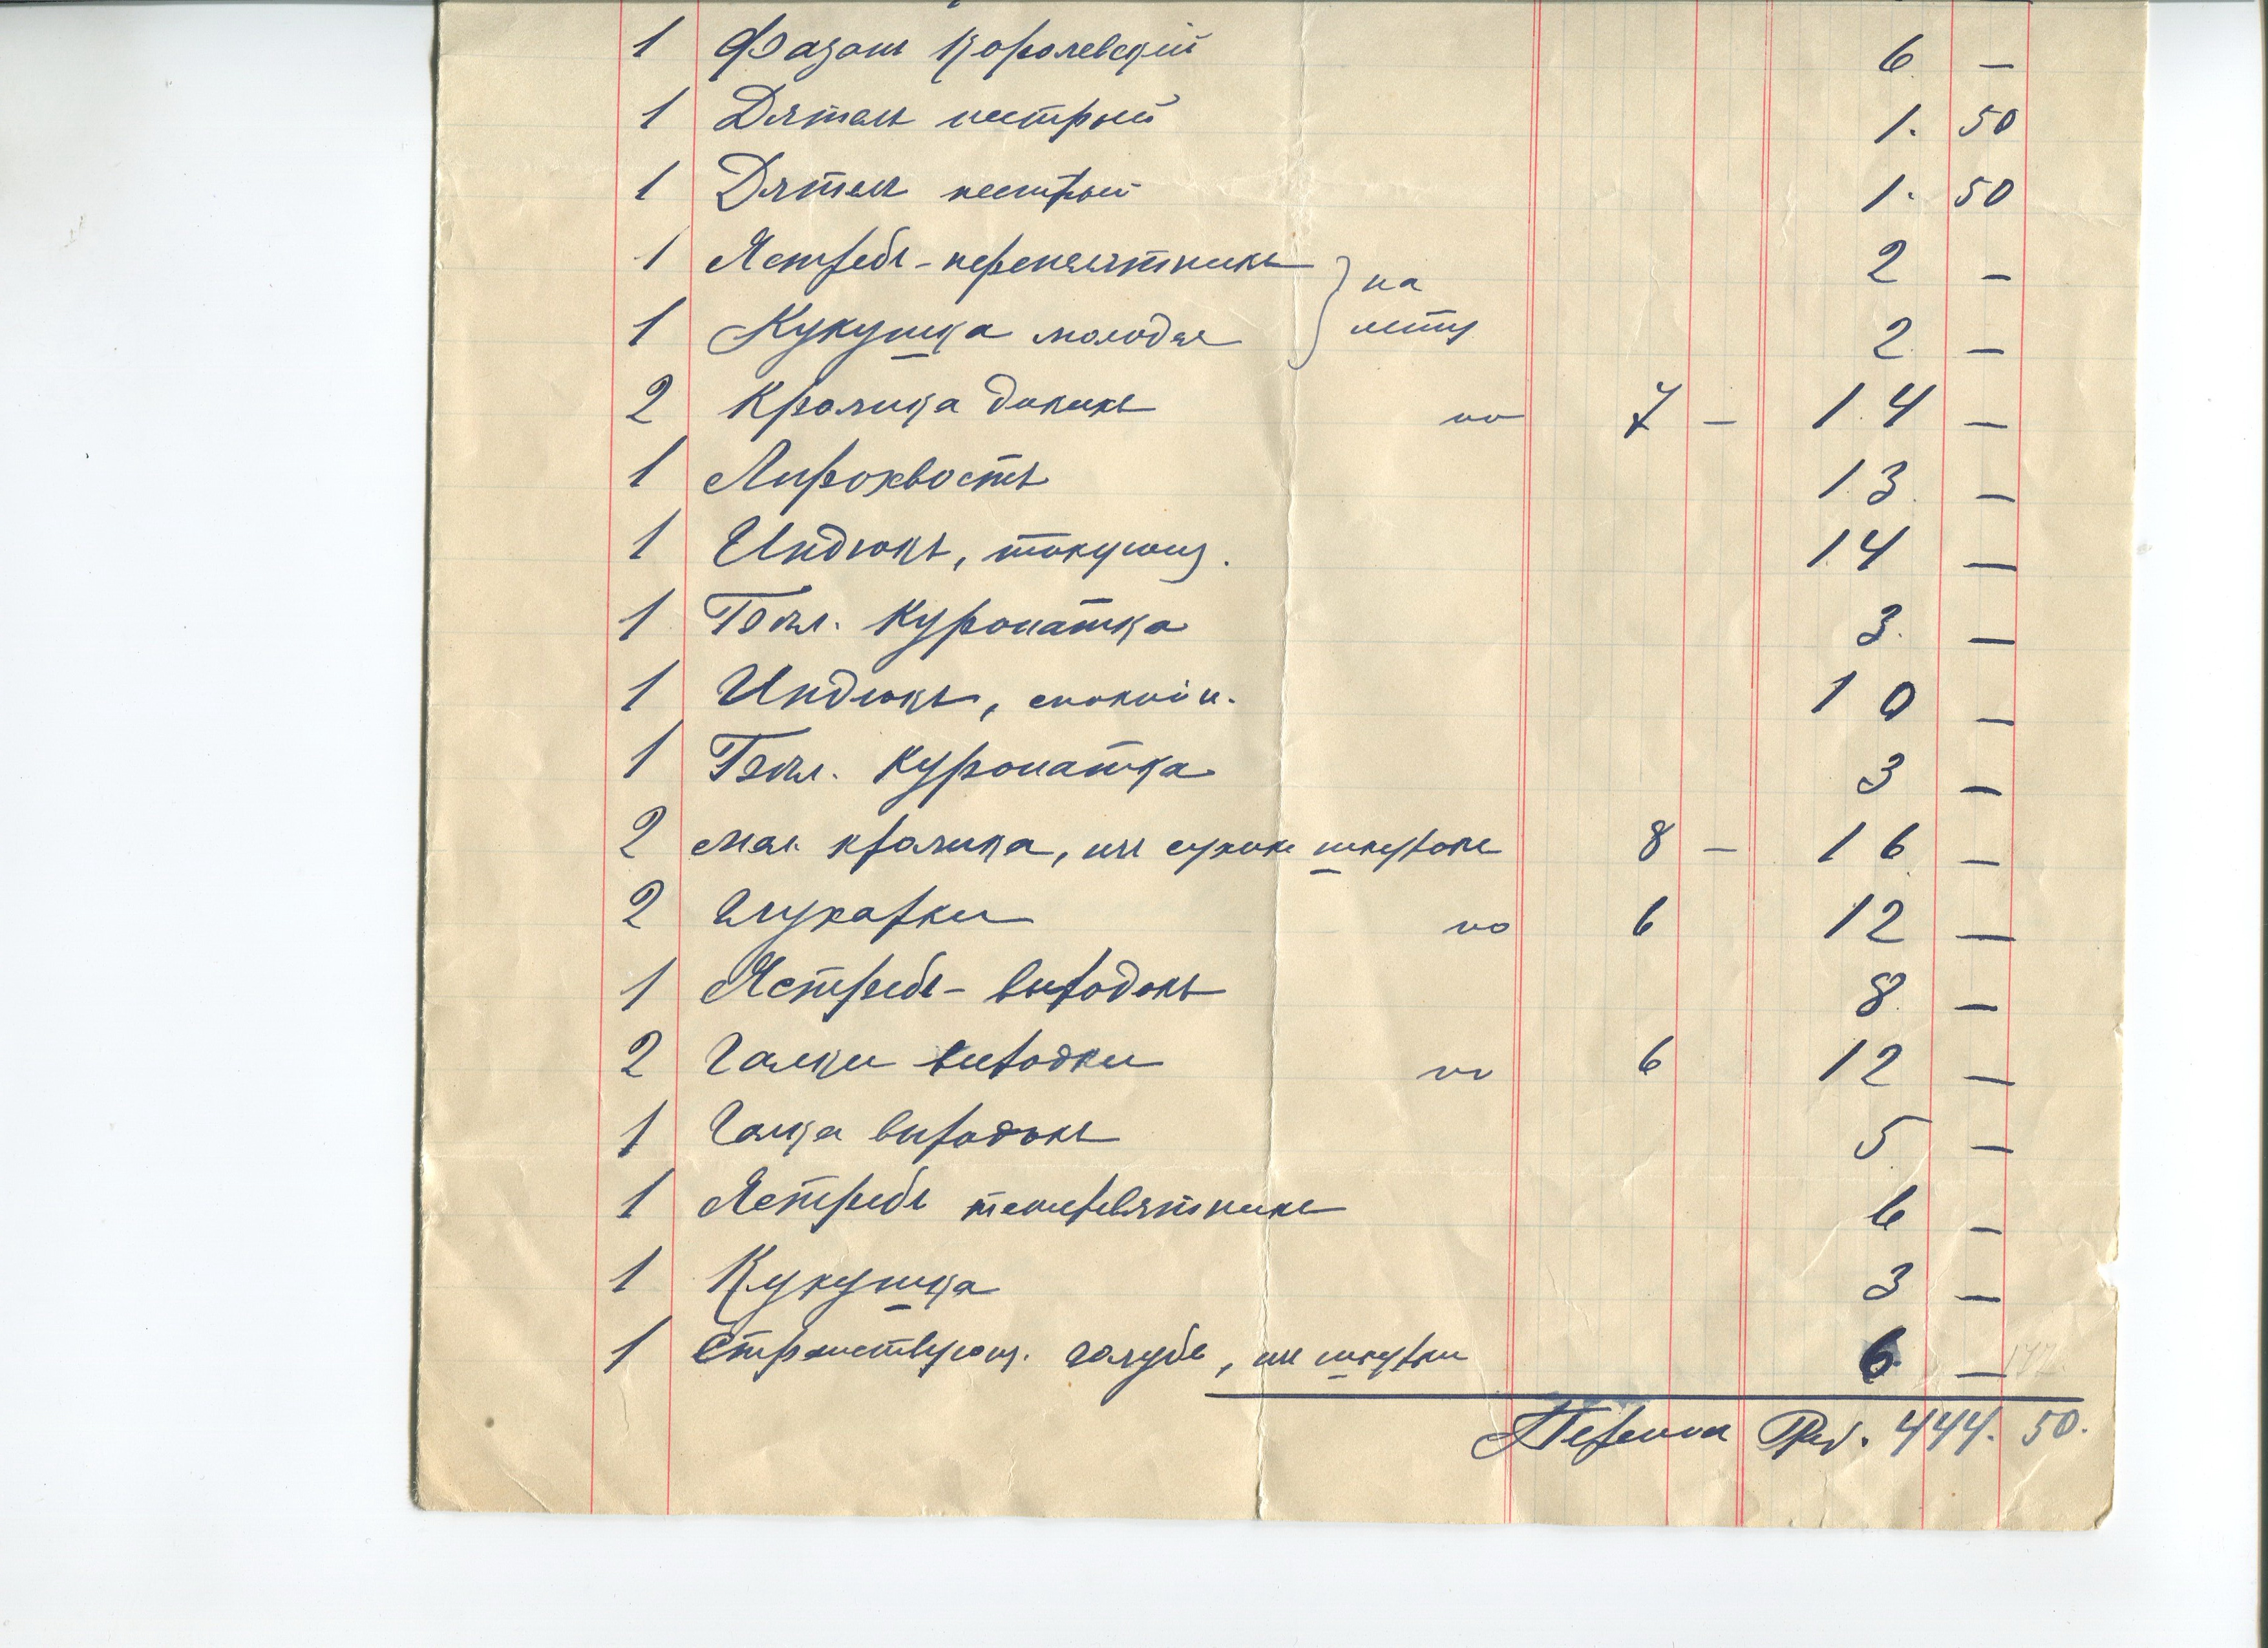 1 Фазанъ Королевскій 6 —
1 Дятелъ пестрый 1. 50
1 Дятелъ пестрый 1. 50
1 Ястребъ-перепелятникъ 2 —
} на лету
1 Кукушка молодая 2 —
2 Кролика дикихъ по 7 — 14 —
1 Лирохвостъ 13 —
1 Индюкъ, токующ. 14 —
1 Бѣл. Куропатка 3 —
1 Индюкъ, спокойн. 10 —
1 Бѣл. Куропатка 3 —
2 мал. кролика, изъ сухихъ шкурокъ 8 — 16 —
2 Глухарки по 6 12 —
1 Ястребъ-выродокъ 8 —
2 Галки выродки по 6 12 —
1 Галка выродокъ 5 —
1 Ястребъ тетеревятникъ 6 —
1 Кукушка 3 —
1 Странствующ. голубь, изъ шкурки 6 —
Руб. 444. 50.